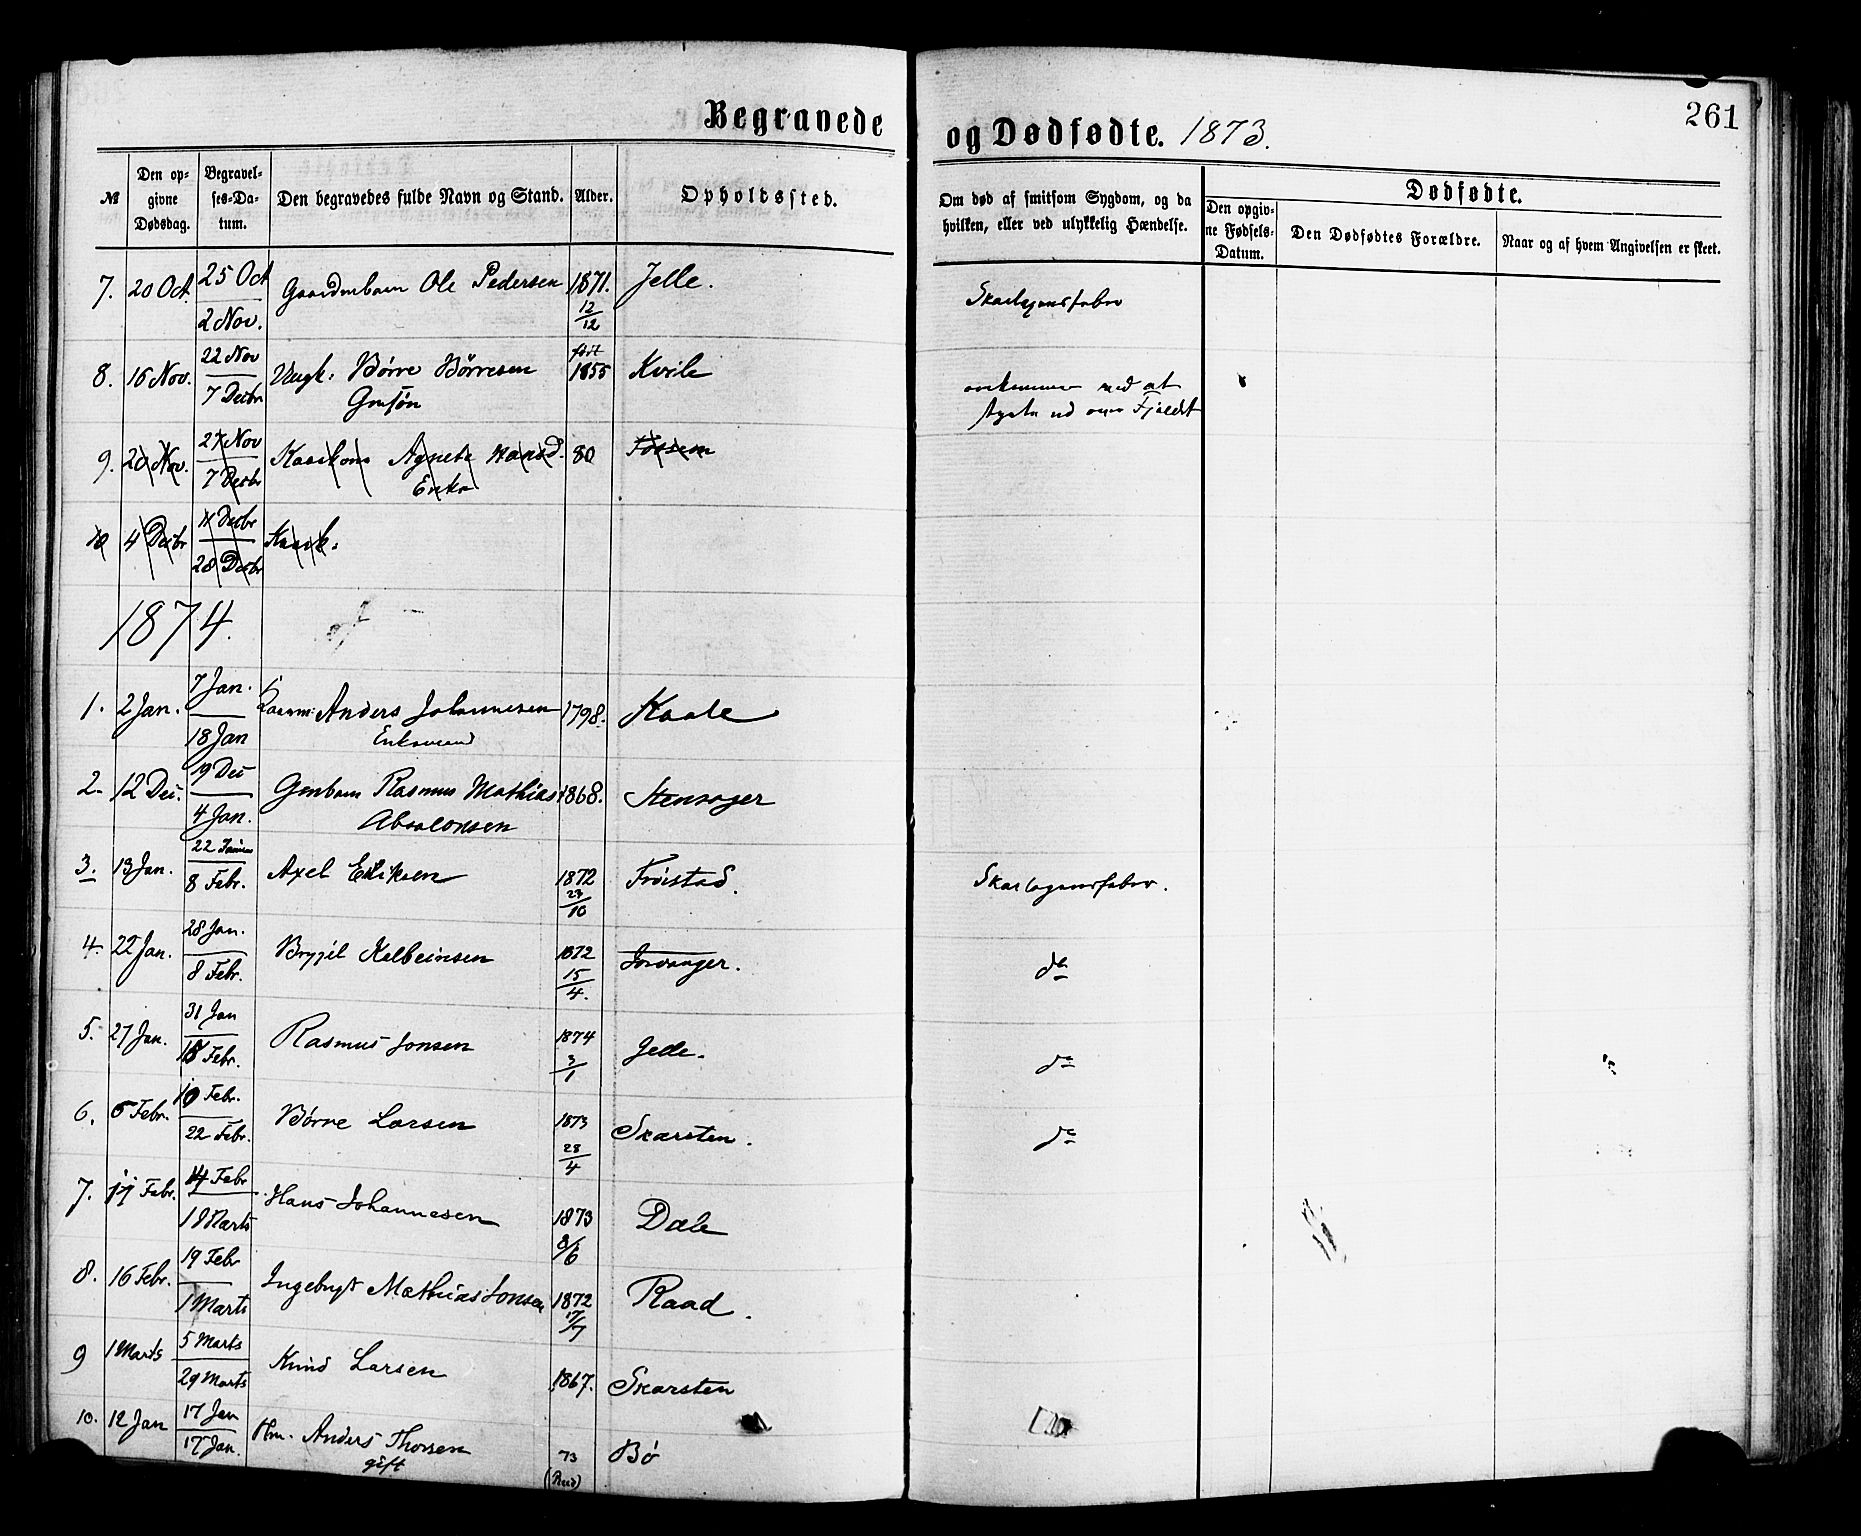 Begravede
og Dødfødte. 1873.
261
№
Den opgivne Dødsdag.
Begravelses-Datum.
Den begravedes fulde Navn og Stand.
Alder.
Opholdssted.
Om død af smitsom Sygdom, og da hvilken, eller ved ulykkelig Hændelse.
Dødfødte.
Den opgivne Fødsels-Datum.
Den Dødfødtes Forældre.
Naar og af hvem Angivelsen er skeet.
7. 20 Oct. 25 Oct Ole Pedersen 1871. Jelle. Skarlagensfeber
2 Nov. 12/12
8. 16 Nov. 22 Nov Ungk: Børre Børresen født 1855 Kvile omkommen ved at
7 Decbr ud over Fjeldet
9. 20 Nov. 27 Nov Agnete Hansd. 80
7 Decbr Enke
10 4 Decbr 11 Decbr
28 Decbr
1874.
1. 2 Jan. 7 Jan. Anders Johannesen 1798. Kaale
18 Jan Enkemand
2. 12 Dec. 19 Dec Rasmus Mathias 1868. Stensager
4 Jan. Absalonsen
3. 13 Jan. 22 Axel Eriksen 1872 Frøistad. Skarlagensfeber.
8 Febr. 23/10
4. 22 Jan. 28 Jan. Brygil Kolbeinsen 1872 Josvanger. do
8 Febr. 15/4.
5. 27 Jan. 31 Jan Rasmus Jonsen 1874 Jelle. do
15 Febr. 3/1
6. 5 Febr. 10 Febr. Børre Larsen 1873 Skarsten. do
22 Febr. 28/4
7. 11 Febr. 14 Febr Hans Johannesen 1873 Dale
1 Marts 8/6
8. 16 Febr. 19 Febr Ingebrigt Mathias Jonsen 1872 Raad.
1 Marts 17/7
9 1 Marts 5 Marts Knud Larsen 1867. Skarsten
29 Marts
10. 12 Jan 17 Jan Hm. Anders Thorsen 73 Bø
17 Jan. gift